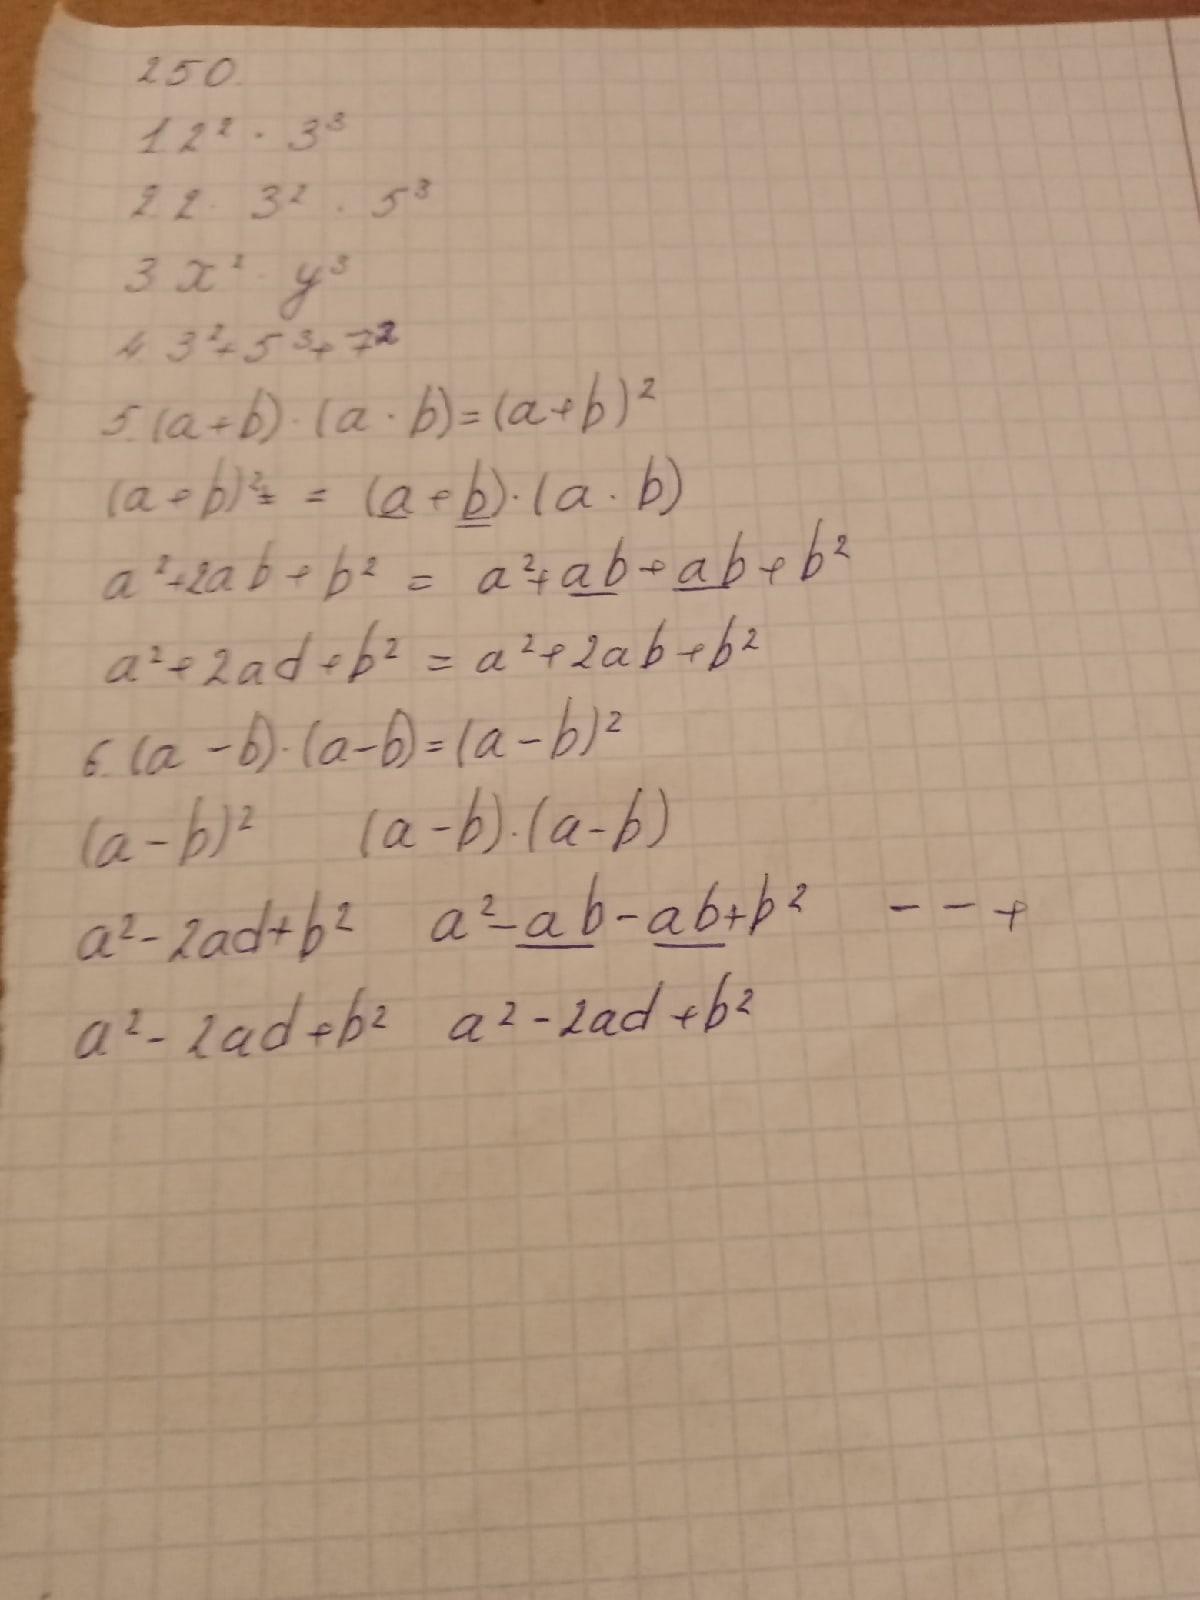 250.
1 2² · 3³
2 2 · 3² · 5³
3 x² · y³
4 3² + 5³ + 7²
5. (a + b) · (a · b) = (a + b)²
(a + b)² = = (a + b) · (a · b)
a² + 2ab + b² = a² + ab + ab + b²
a² + 2ad + b² = a² + 2ab + b²
6. (a - b) · (a - b) = (a - b)²
(a - b)² (a - b) · (a - b)
a² - 2ad + b² a² - ab - ab + b² - - +
a² - 2ad + b² a² - 2ad + b²